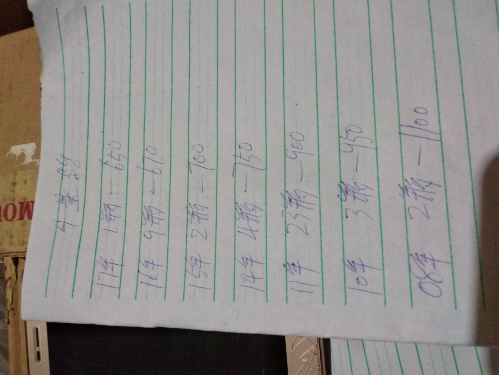 17年 1瓶—650
16年 9瓶—670
15年 2瓶—700
14年 4瓶—750
11年 23瓶—900
10年 3瓶—950
08年 2瓶—1100
MOU